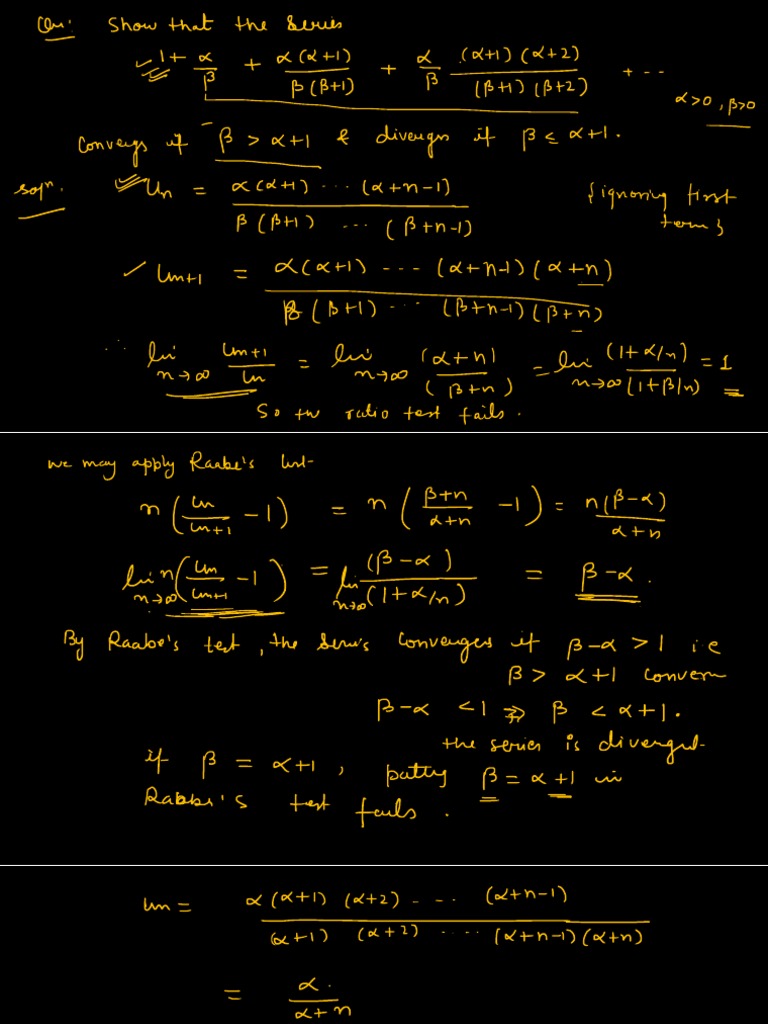 Qn: Show that the Series
1 + α/β + α(α+1)/β(β+1) + α/β (α+1)(α+2)/(β+1)(β+2) + ...
α>0, β>0
Convergs if β > α+1 & diverges if β ≤ α+1.
Soln. Un = α(α+1) ... (α+n-1) / β(β+1) ... (β+n-1) {ignoring first term}
Un+1 = α(α+1) ... (α+n-1)(α+n) / β(β+1) ... (β+n-1)(β+n)
∴ lim n→∞ Un+1/Un = lim n→∞ (α+n)/(β+n) = lim n→∞ (1+α/n)/(1+β/n) = 1
So the ratio test fails.
we may apply Raabe's test
n(Un/Un+1 - 1) = n((β+n)/(α+n) - 1) = n(β-α)/(α+n)
lim n→∞ n(Un/Un+1 - 1) = lim n→∞ (β-α)/(1+α/n) = β-α.
By Raabe's test, the series converges if β-α > 1 i.e
β > α+1 convern
β-α < 1 ⇒ β < α+1.
the series is divergent.
if β = α+1, putting β = α+1 in
Raabe's test fails.
un = α(α+1)(α+2) ... (α+n-1) / (α+1)(α+2) ... (α+n-1)(α+n)
= α/(α+n)